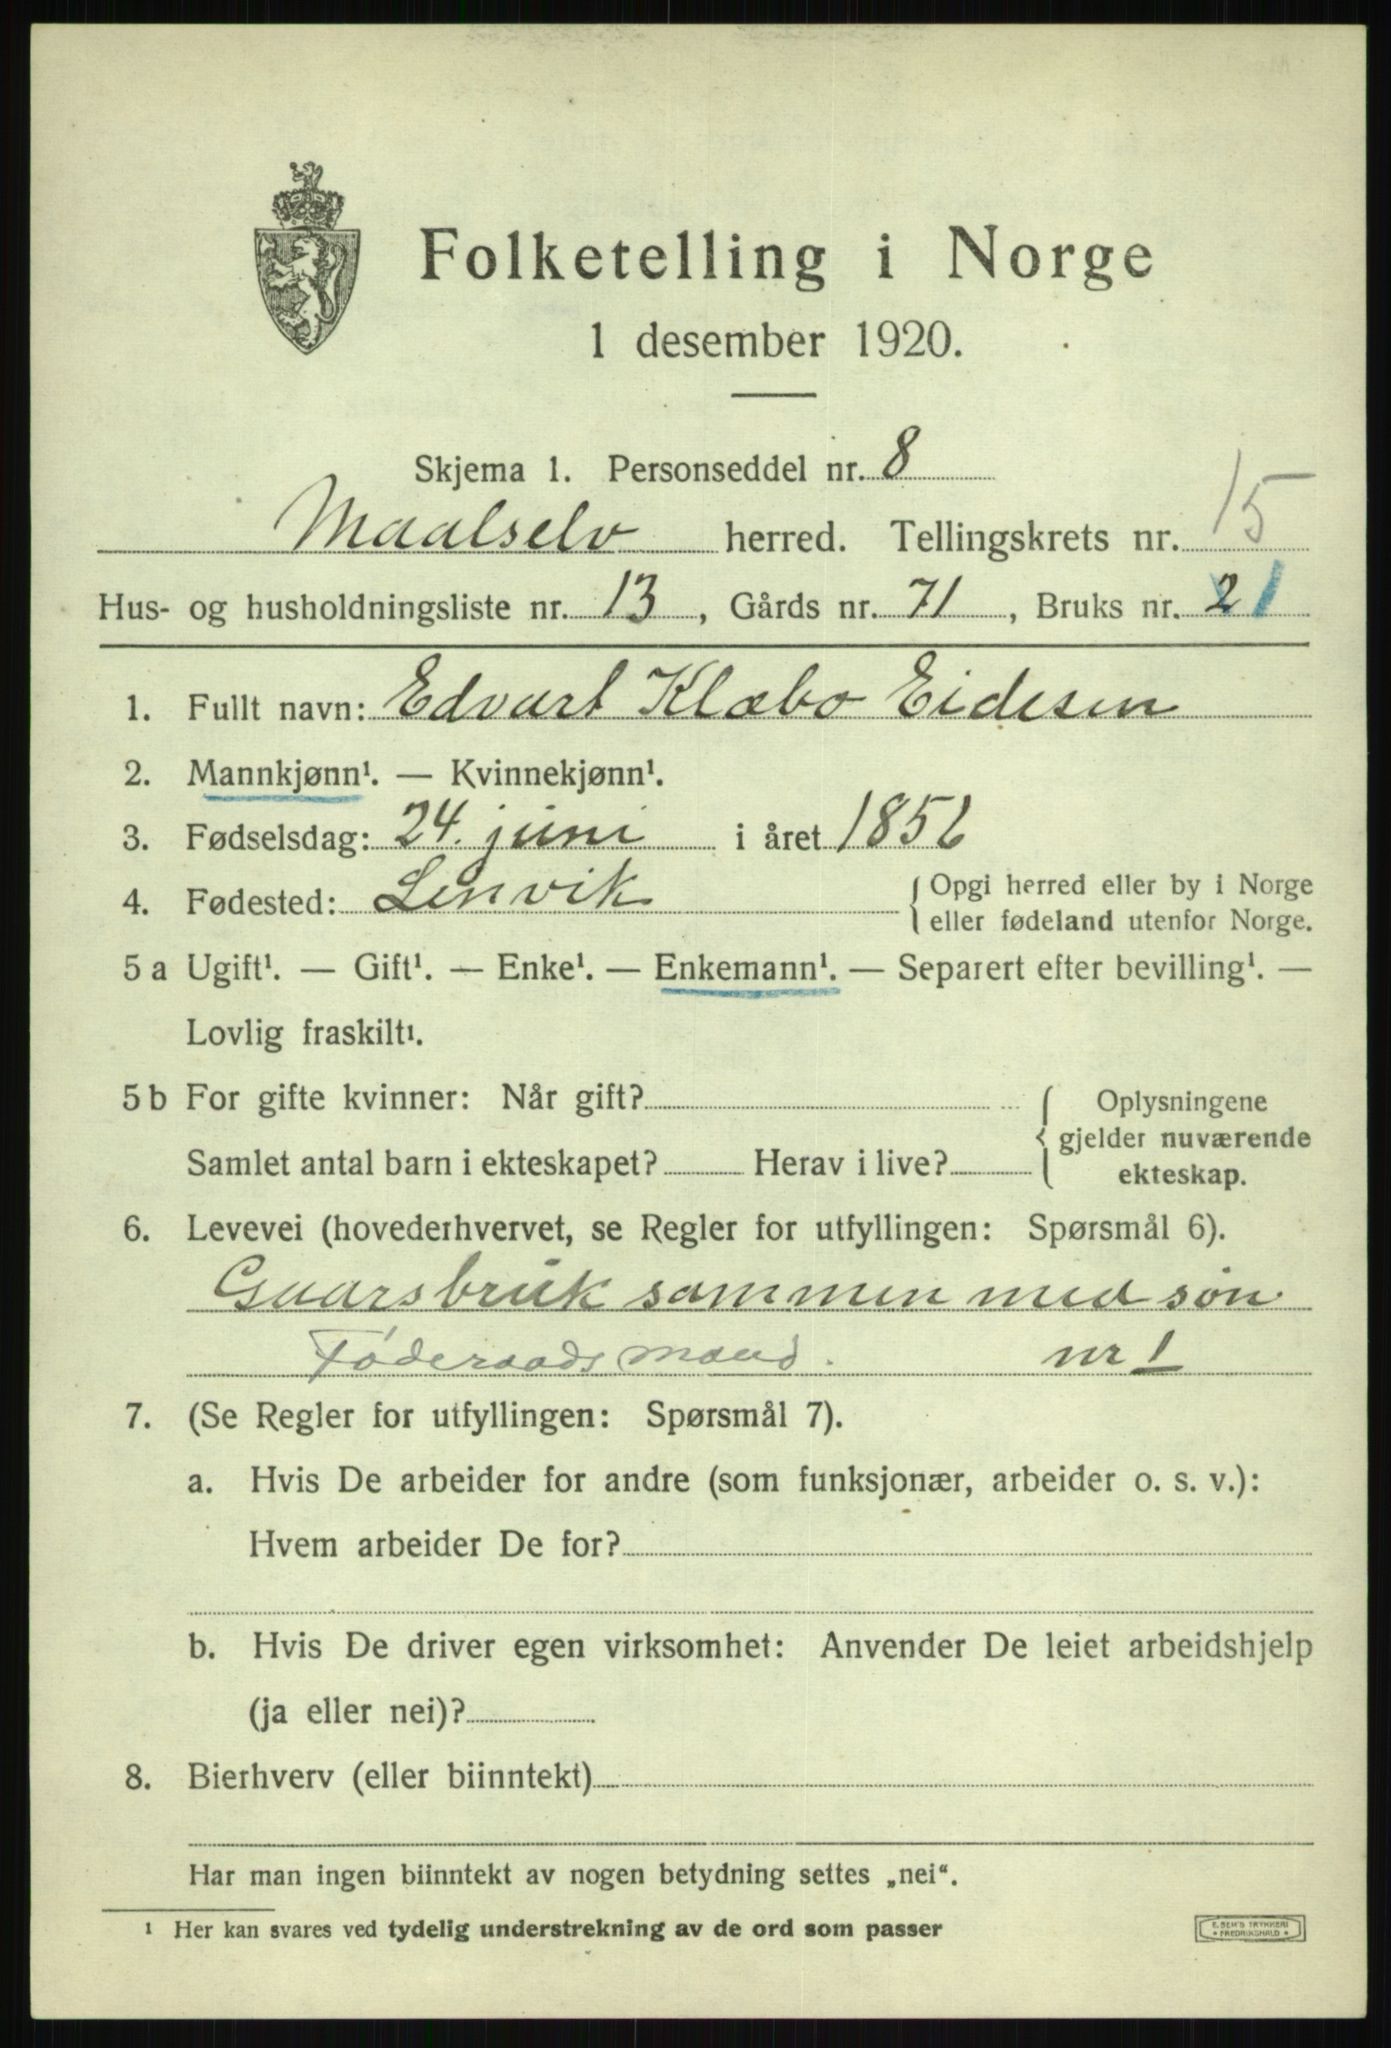 Folketelling i Norge
1 desember 1920.
Skjema 1. Personseddel nr. 8
Maalselv herred. Tellingskrets nr. 15
Hus- og husholdningsliste nr. 13, Gårds nr. 71, Bruks nr. 21
1. Fullt navn: Edvart Klæbo Eidesen
2. Mannkjønn¹. — Kvinnekjønn¹.
3. Fødselsdag: 24. juni i året 1856
4. Fødested: Lenvik
{ Opgi herred eller by i Norge
eller fødeland utenfor Norge.
5 a Ugift¹. — Gift¹. — Enke¹. — Enkemann¹. — Separert efter bevilling¹. —
Lovlig fraskilt¹.
5 b For gifte kvinner: Når gift?
Samlet antal barn i ekteskapet? Herav i live?
{ Oplysningene
gjelder nuværende
ekteskap.
6. Levevei (hovederhvervet, se Regler for utfyllingen: Spørsmål 6).
Gaarsbruk sammen med søn
Føderaadsmand. nr 1
7. (Se Regler for utfyllingen: Spørsmål 7).
a. Hvis De arbeider for andre (som funksjonær, arbeider o. s. v.):
Hvem arbeider De for?
b. Hvis De driver egen virksomhet: Anvender De leiet arbeidshjelp
(ja eller nei)?
8. Bierhverv (eller biinntekt)
Har man ingen biinntekt av nogen betydning settes „nei“.
¹ Her kan svares ved tydelig understrekning av de ord som passer
E. SEM'S TRYKKERI
• FREDRIKSHALD •